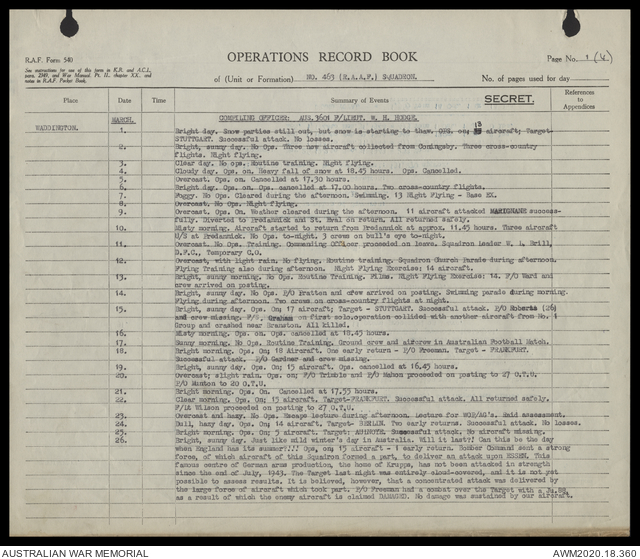 R.A.F. Form 540
OPERATIONS RECORD BOOK
Page No. 1 (4)
See instructions for use of this form in K.R. and A.C.I.,
para. 2349, and War Manual, Pt. II., chapter XX., and
notes in R.A.F. Pocket Book.
of (Unit or Formation) NO. 463 (R.A.A.F.) SQUADRON.
No. of pages used for day
Place Date Time Summary of Events SECRET. References to Appendices
MARCH. COMPILING OFFICER: AUS. F/LIEUT. W. H.
WADDINGTON. 1. Bright day. Snow parties still out, but snow is starting to thaw. OPS. on; aircraft; Target-
STUTTGART. Successful attack. No losses.
2. Bright, sunny day. No Ops. Three new aircraft collected from Coningsby. Three cross-country
flights. Night flying.
3. Clear day. No ops. Routine training. Night flying.
4. Cloudy day. Ops. on. Heavy fall of snow at 18.45 hours. Ops. Cancelled.
5. Overcast. Ops. on. Cancelled at 17.30 hours.
6. Bright day. Ops. on. Ops. cancelled at 17.00 hours. Two cross-country flights.
7. Foggy. No Ops. Cleared during the afternoon. Swimming. 13 Night Flying - Base EX.
8. Overcast. No Ops. Night flying.
9. Overcast. Ops. On. Weather cleared during the afternoon. 11 aircraft attacked MARIGNANE success-
fully. Diverted to Predannick and St. Eval on return. All returned safely.
10. Misty morning. Aircraft started to return from Predannick at approx. 11.45 hours. Three aircraft
U/S at Predannick. No Ops. to-night. 3 crews on bull's eye to-night.
11. Overcast. No Ops. Training. Commanding Officer proceeded on leave. Squadron Leader W. L. Brill,
D.F.C., Temporary C.O.
12. Overcast, with light rain. No flying. Routine training. Squadron Church Parade during afternoon.
Flying Training also during afternoon. Night Flying Exercise: 14 aircraft.
13. Bright, sunny morning. No Ops. Routine Training. Films. Night Flying Exercise: 14. F/O Ward and
crew arrived on posting.
14. Bright, sunny day. No Ops. P/O Fratten and crew arrived on posting. Swimming parade during morning.
Flying during afternoon. Two crews on cross-country flights at night.
15. Bright, sunny day. Ops. on; 17 aircraft; Target - STUTTGART. Successful attack. P/O Roberts (26)
and crew missing. F/S. Graham on first solo operation collided with another aircraft from No. 1
Group and crashed near Branston. All killed.
16. Misty morning. Ops. on. Ops. cancelled at 18.45 hours.
17. Sunny morning. No Ops. Routine Training. Ground crew and aircrew in Australian Football Match.
18. Bright morning. Ops. on; 18 Aircraft. One early return - P/O Freeman. Target - FRANKFURT.
Successful attack. P/O Gardner and crew missing.
19. Bright, sunny day. Ops. On; 15 aircraft. Ops. cancelled at 16.45 hours.
20. Overcast; slight rain. Ops. on; F/O Trimble and P/O Mahon proceeded on posting to 27 O.T.U.
P/O Manton to 20 O.T.U.
21. Bright morning. Ops. On. Cancelled at 17.55 hours.
22. Clear morning. Ops. on; 15 aircraft. Target-FRANKFURT. Successful attack. All returned safely.
F/Lt Wilson proceeded on posting to 27 O.T.U.
23. Overcast and hazy. No Ops. Escape lecture during afternoon. Lecture for WOP/AG's. Raid assessment.
24. Dull, hazy day. Ops. on; 14 aircraft. Target - BERLIN. Two early returns. Successful attack. No losses.
25. Bright morning. Ops. on; 5 aircraft. Target: AULNOYE. Successful attack. No aircraft missing.
26. Bright, sunny day. Just like mild winter's day in Australia. Will it last?! Can this be the day
when England has its summer?!!! Ops, on; 15 aircraft - 1 early return. Bomber Command sent a strong
force, of which aircraft of this Squadron formed a part, to deliver an attack upon ESSEN. This
famous centre of German arms production, the home of Krupps, has not been attacked in strength
since the end of July, 1943. The Target last night was entirely cloud-covered, and it is not yet
possible to assess results. It is believed, however, that a concentrated attack was delivered by
the large force of aircraft which took part. P/O Freeman had a combat over the Target with a Ju. 88,
as a result of which the enemy aircraft is claimed DAMAGED. No damage was sustained by our aircraft.
AUSTRALIAN WAR MEMORIAL
AWM2020.18.360